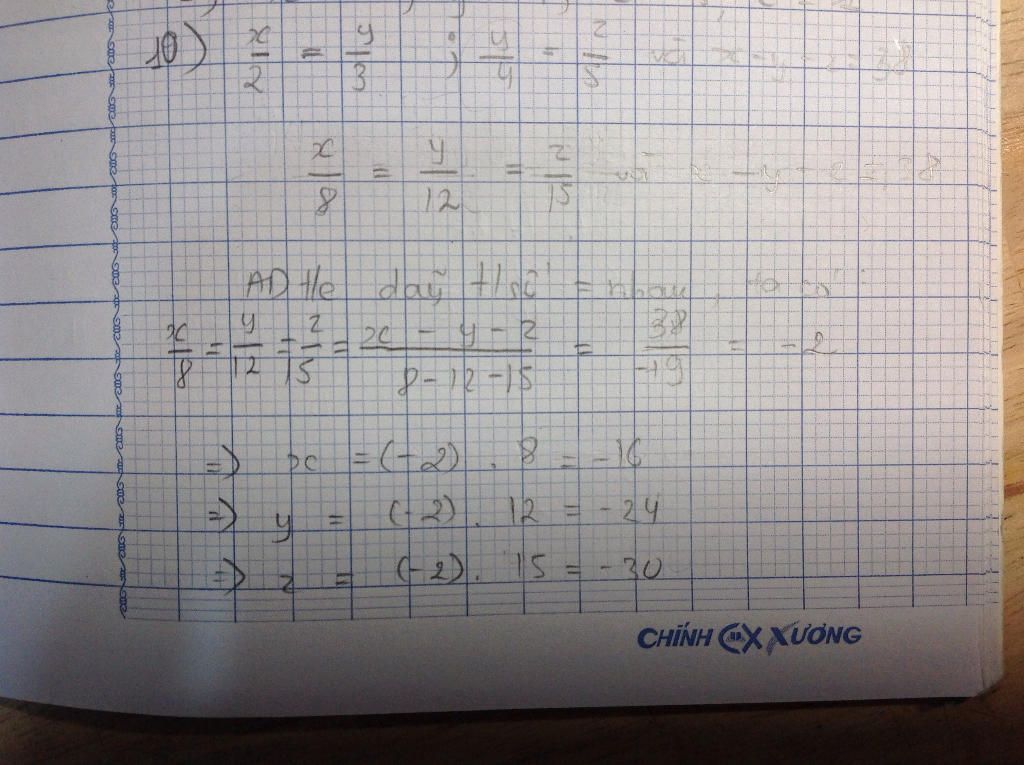 10) x/2 = y/3 ; y/4 = z/5 và x - y - z = 38
x/8 = y/12 = z/15 và x - y - z = 38
AD t/c dãy tỉ số = nhau, ta có
x/8 = y/12 = z/15 = x - y - z / 8 - 12 - 15 = 38/-19 = -2
=> x = (-2) . 8 = -16
=> y = (-2) . 12 = -24
=> z = (-2) . 15 = -30
CHÍNH XƯƠNG